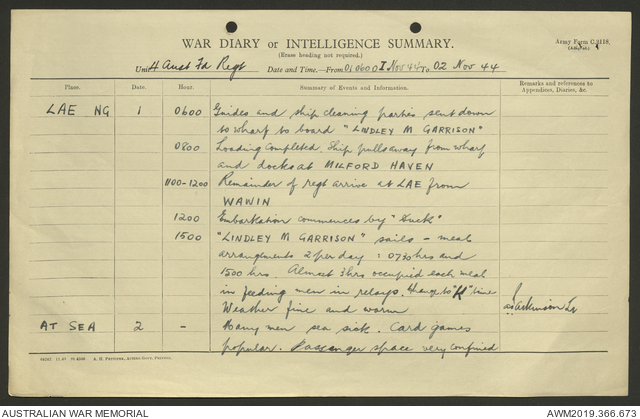 WAR DIARY or INTELLIGENCE SUMMARY.
(Erase heading not required.)
Army Form C.2118.
Unit 4 Aust Fd Regt Date and Time.—From 010600 I Nov 44 To 02 Nov 44
Place. Date. Hour. Summary of Events and Information. Remarks and references to Appendices, Diaries, &c.
LAE NG 1 0600 Guides and ship cleaning parties sent down
to wharf to board "LINDLEY M GARRISON"
0800 Loading completed. Ship pulls away from wharf
and docks at MILFORD HAVEN
1100-1200 Remainder of regt arrive at LAE from
WAWIN
1200 Embarkation commences by "Duck"
1500 "LINDLEY M GARRISON" sails - meal
arrangements 2 per day : 0730 hrs and
1500 hrs. Almost 3 hrs occupied each meal
in feeding men in relays. Change to "K" time
Weather fine and warm
AT SEA 2 - Many men sea sick. Card games
popular. Passenger space very confined
AUSTRALIAN WAR MEMORIAL
AWM2019.366.673